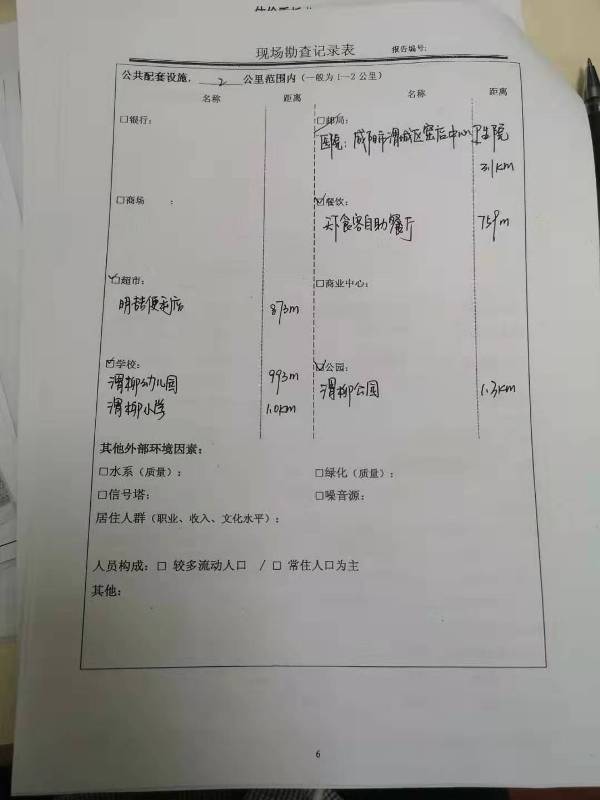 现场勘查记录表 报告编号:
公共配套设施, 2 公里范围内(一般为1—2公里)
名称 距离 名称 距离
□银行: ☑邮局:
医院:咸阳市渭城区窑店中心卫生院
3.1km
□商场 : ☑餐饮:
天下食客自助餐厅 759m
☑超市: □商业中心:
明喆便利店 873m
☑学校: ☑公园:
渭柳幼儿园 993m 渭柳公园 1.3km
渭柳小学 1.0km
其他外部环境因素:
□水系(质量): □绿化(质量):
□信号塔; □噪音源:
居住人群(职业、收入、文化水平):
人员构成:□ 较多流动人口 / □ 常住人口为主
其他:
6